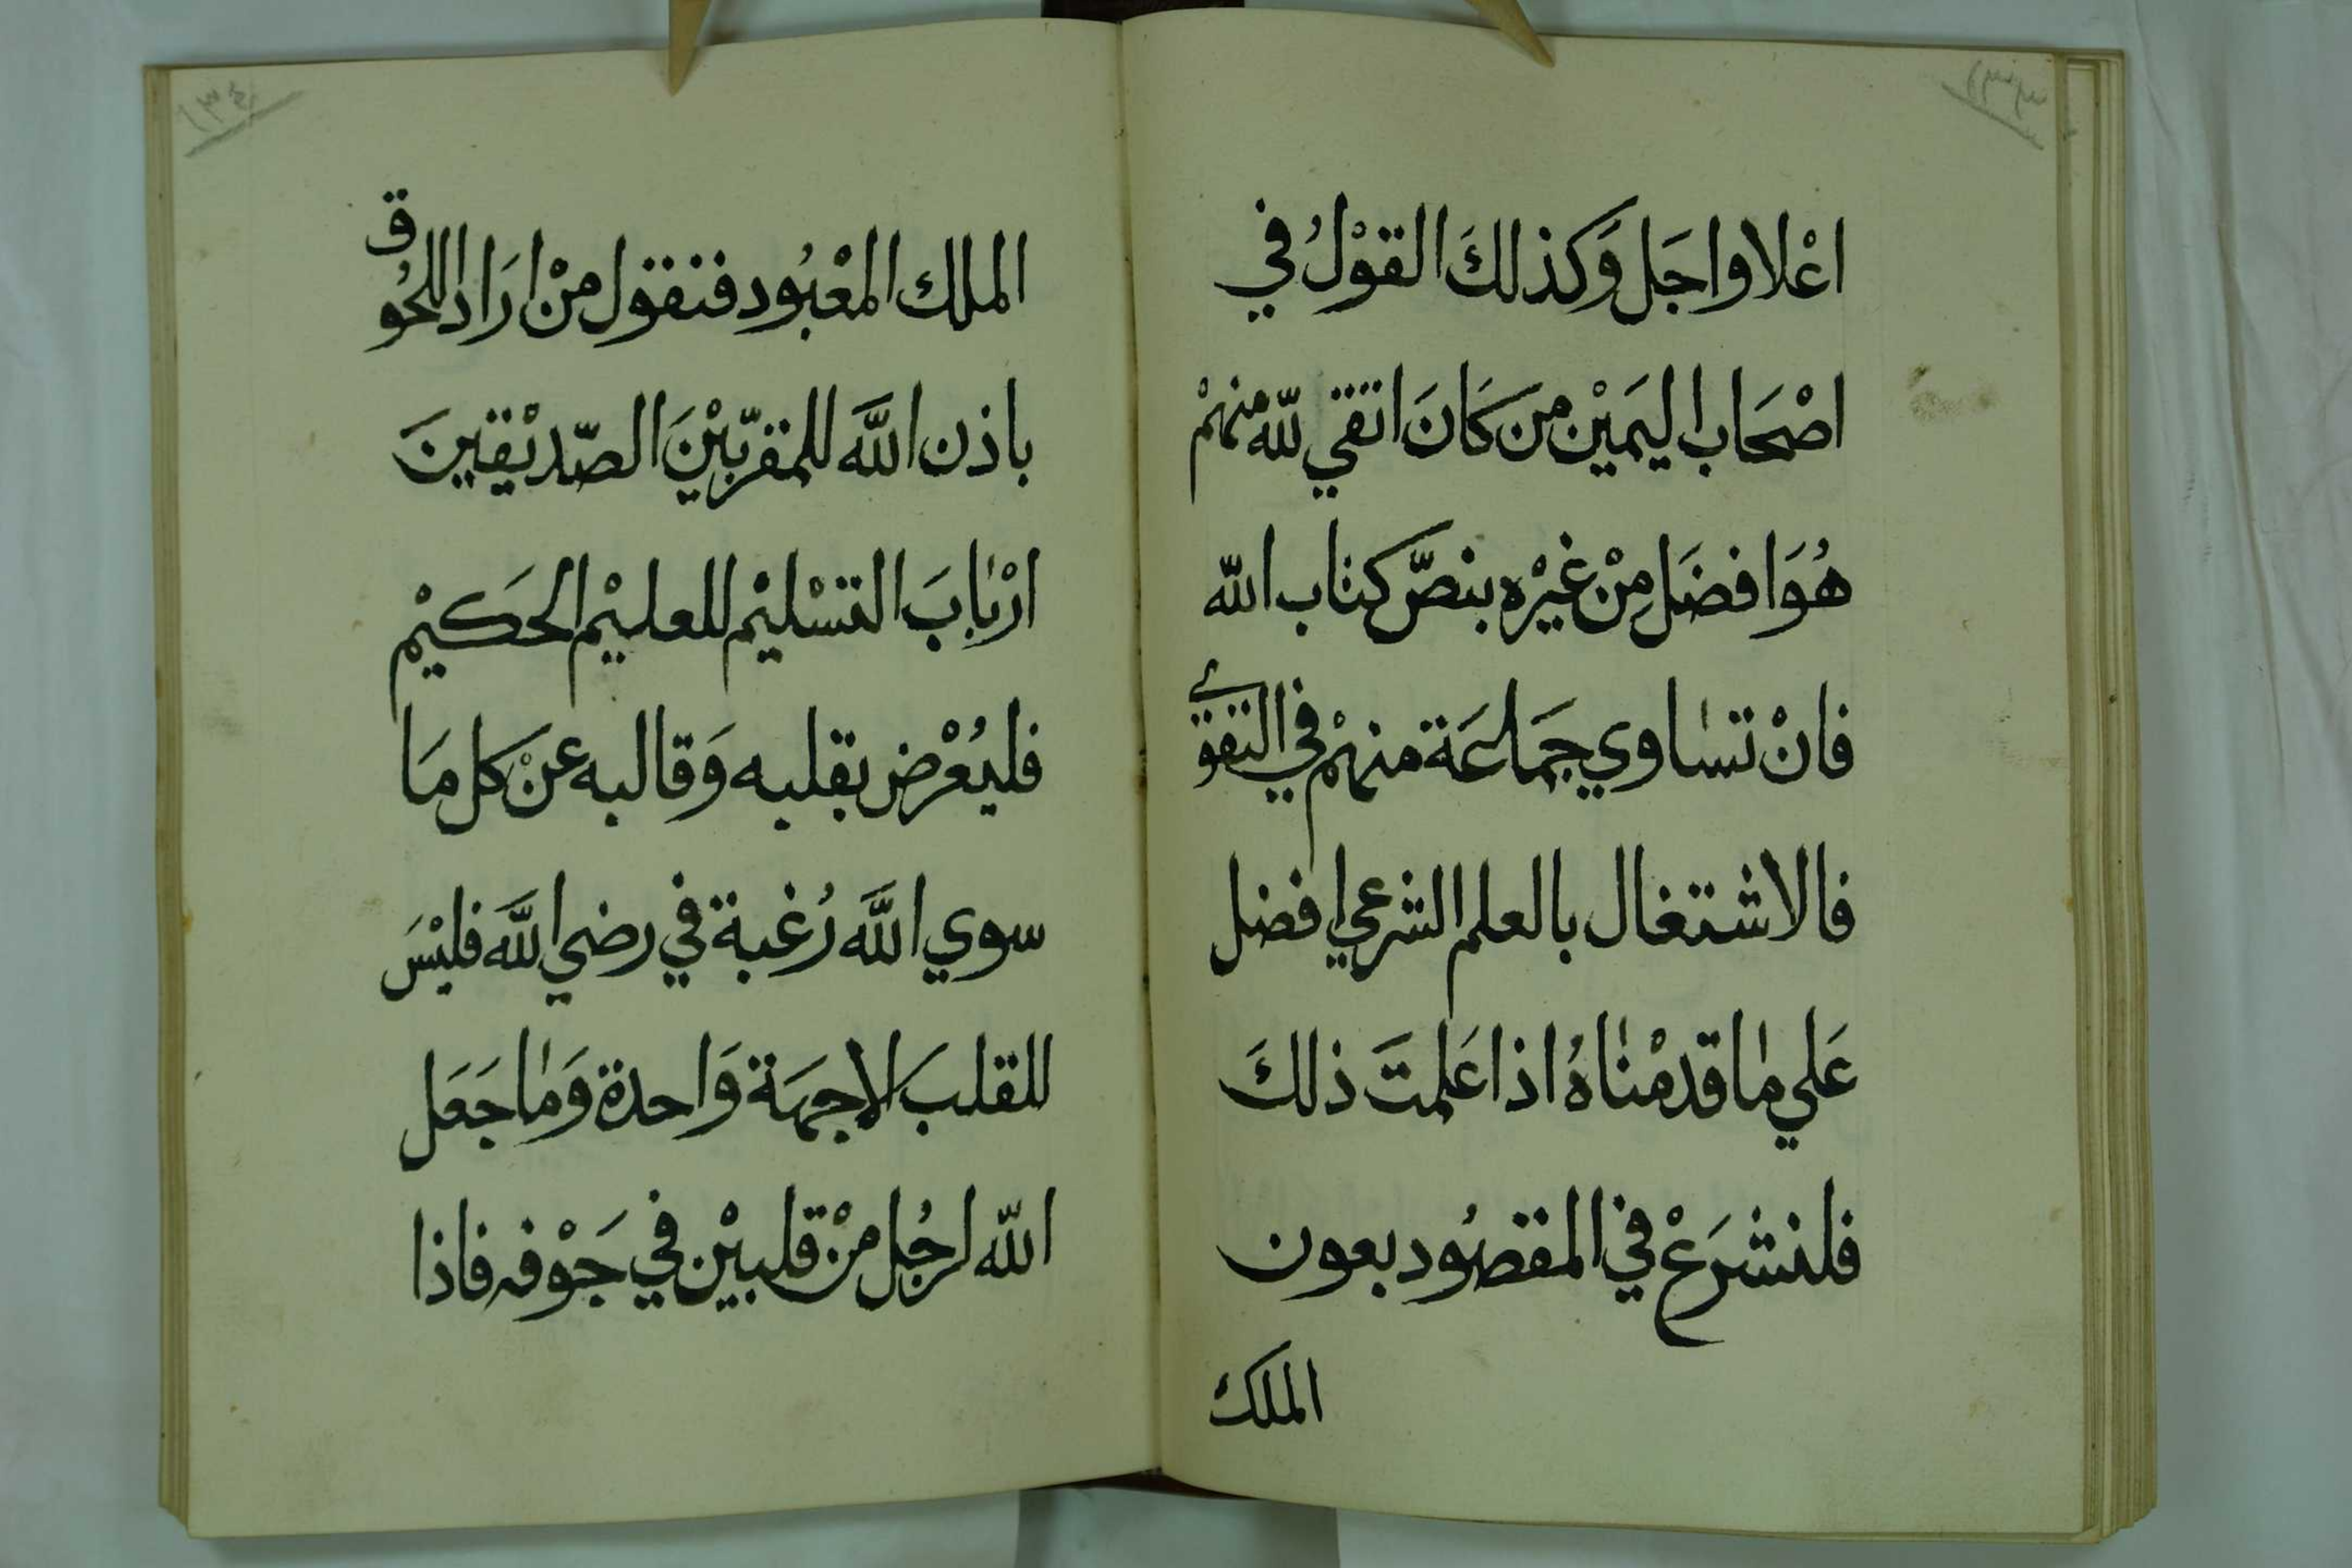 ١٣٣
اعْلا واجَل وَكذلكَ القوْلُ في
اصْحَاب اليَمَيْن من كَانَ اتقي للّه منهمْ
هُوَ افضَل مِنْ غيْره بنصّ كتاب اللّه
فانْ تساوي جمَاعَة منهمْ في التقوي
فالاشتغال بالعلم الشرعي افضل
عَلي ما قدمْناهُ اذا عَلمتَ ذلكَ
فلنشرَعْ في المقصُود بعون
الملك
١٣٤
الملك المعْبُود فنقول منْ ارَاد اللحُوق
باذن اللَّه للمقربّيْنَ الصّديْقينَ
ارْبابَ التسْليْم للعليْم الحَكيْم
فليُعْرْض بقلبه وَقالبه عنْ كل مَا
سوي اللَّه رُغبة في رضي اللَّه فليْسَ
للقلب الا جهَة وَاحدة وَما جَعَل
اللّه لرجُل منْ قلبيْن في جَوْفه فاذا